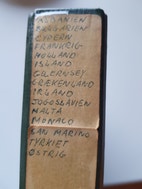 SPANIEN
UNGARIEN
CYPERN
FRANKRIG
HOLLAND
ISLAND
GUERNSEY
GRÆKENLAND
IRLAND
JUGOSLAVIEN
MALTA
MONACO
SAN MARINO
TYRKIET
ØSTRIG